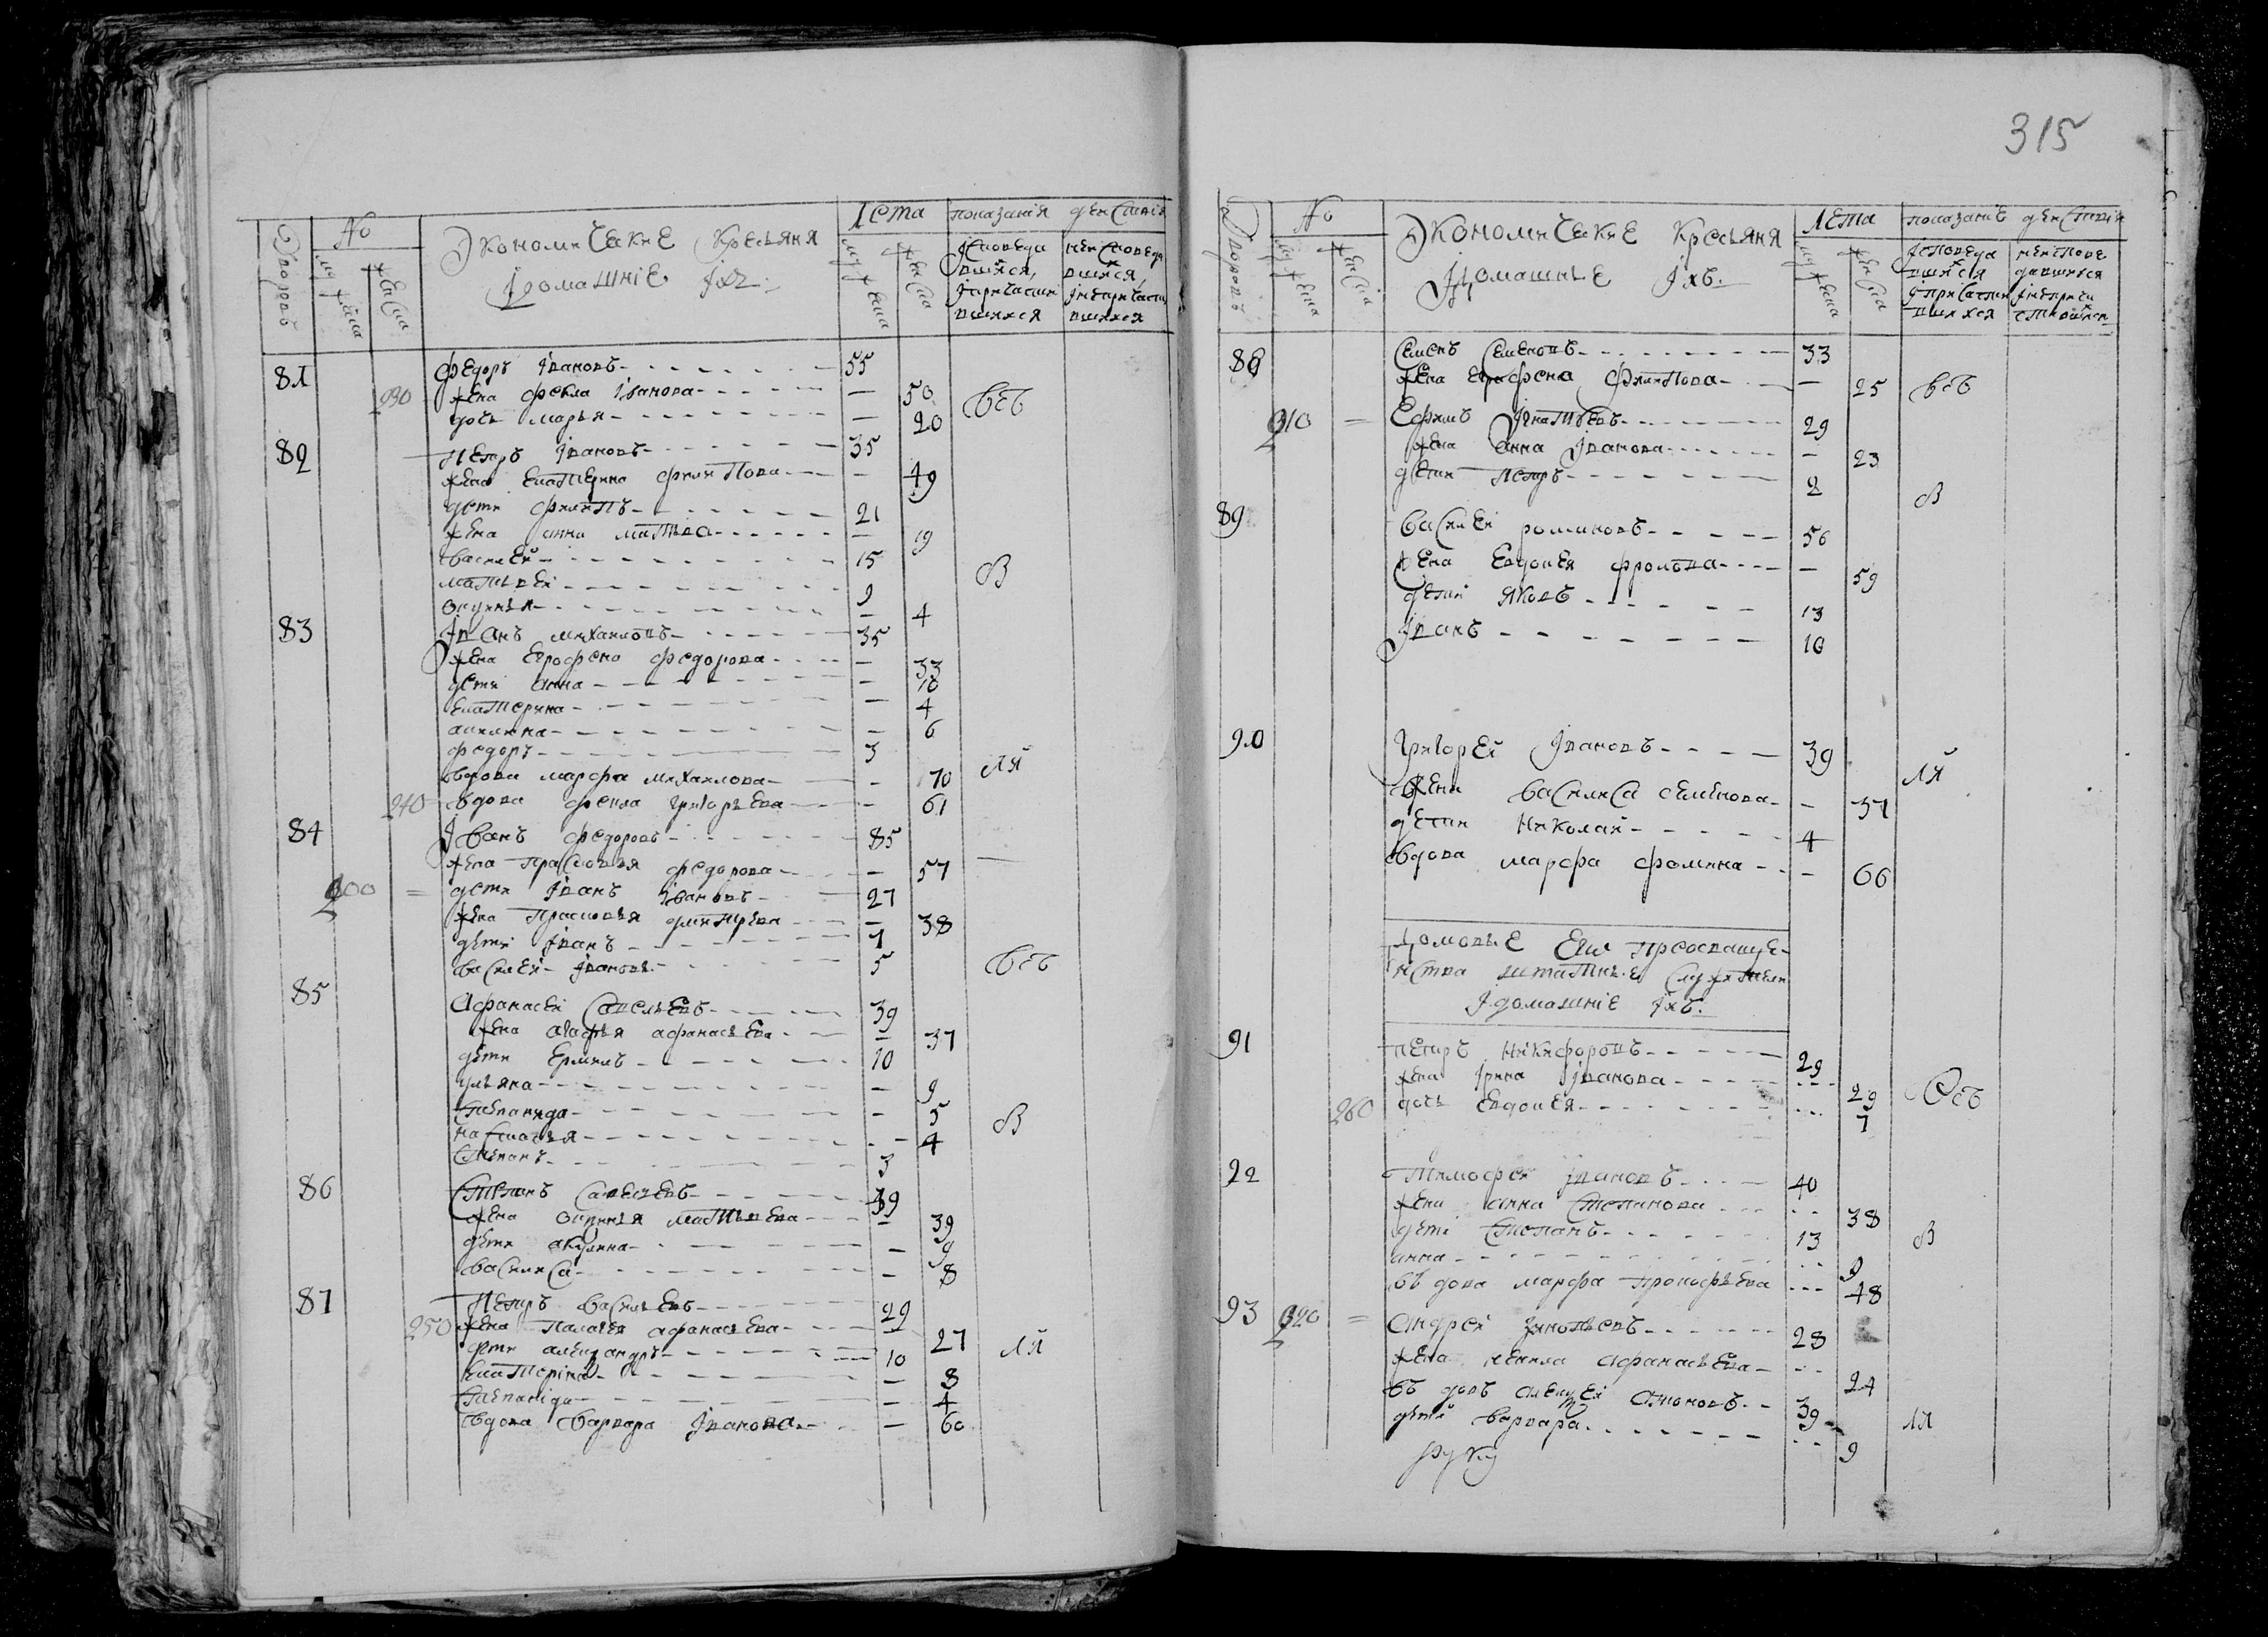 No
Экономические крестьяня
Їдомашніе їхъ:
Дворовъ
муж еска
женска
лета
муж еска
женска
показанія действія
Їсповеда
вшихся,
їпричасти
вшихся
неисповеда
вшихся,
інепричасти
вшихся
81 Федоръ Ївановъ 55
230 жена Фекла Іванова — 50 всѣ
дочь Марья — 20
82 Петръ Ївановъ 35
жена Екатерина Филипова — 49
дети Филипъ 21
жена Анна Матвева — 19
Василей 15 в
Матьвей 9
Окулья — 4
83 Їванъ Михаиловъ 35
жена Ерофена Федорова — 33
дети Анна — 10
Екатерина — 4
Акилина — 6
Федоръ 3
вдова Марфа Михаилова — 70 ля
240 вдова Фекла Григорьева — 61
84 Їванъ Федоровъ 85
жена Прасковья Федорова — 57
200 = дети Їванъ Івановъ 27
жена Прасковья Дмитрева — 38
дети Їванъ 7
Василей Їванов 5 всѣ
85 Афанасеи Савельевъ 39
жена Агафья Афанасьева — 37
дети Ермилъ 10
Ульяна — 9
Степанида — 5 в
Настасья — 4
Степанъ 3
86 Степанъ Савельевъ 39
жена Окулинья Матьвева — 39
дети Акулина — 9
Василиса — 8
87 Петръ Васильевъ 29
250 жена Палагея Афанасьева — 27
дети Александръ 10 ля
Екатеріна — 8
Степаніда — 4
вдова Варвара Їванова — 60
315
Дворовъ
No
муж еска
женска
Экономические крестьяня
Їдомашные їхъ:
лета
муж еска
женска
показание действія
Їсповеда
вшихся
їпричасти
вшихся
неиспове
давшихся
їнеприча
стившися
88 Семенъ Семеновъ 33
жена Ерофена Филипова — 25 всѣ
210 = Ефимъ Їгнатьевъ 29
жена Анна Їванова — 23
дети Петръ 2 в
89 Василей Романовъ 56
жена Евдокея Фролова — 59
дети Яковъ 13
Їванъ 10
90 Григорей Ївановъ 39 ля
жена Василиса Семенова — 37
дети Николай 4
вдова Марфа Фомина — 66
Домовые Его Преосвяще-
нства штатные служители
Їдомашніе їхъ:
91 Петръ Никифоровъ 29
жена Їрина Їванова 29 Всѣ
260 дочь Евдокея 7
92 Тимофеи Ївановъ 40
жена Анна Степанова 38
дети Степанъ 13 в
Анна 9
въдова Марфа Прокофьева 48
93 220 = Андрей Зинотьевъ 28
жена Ненила Афанасьева 24
въдовъ Алексей Антоновъ 39
дети Варвара 9 ля
руку